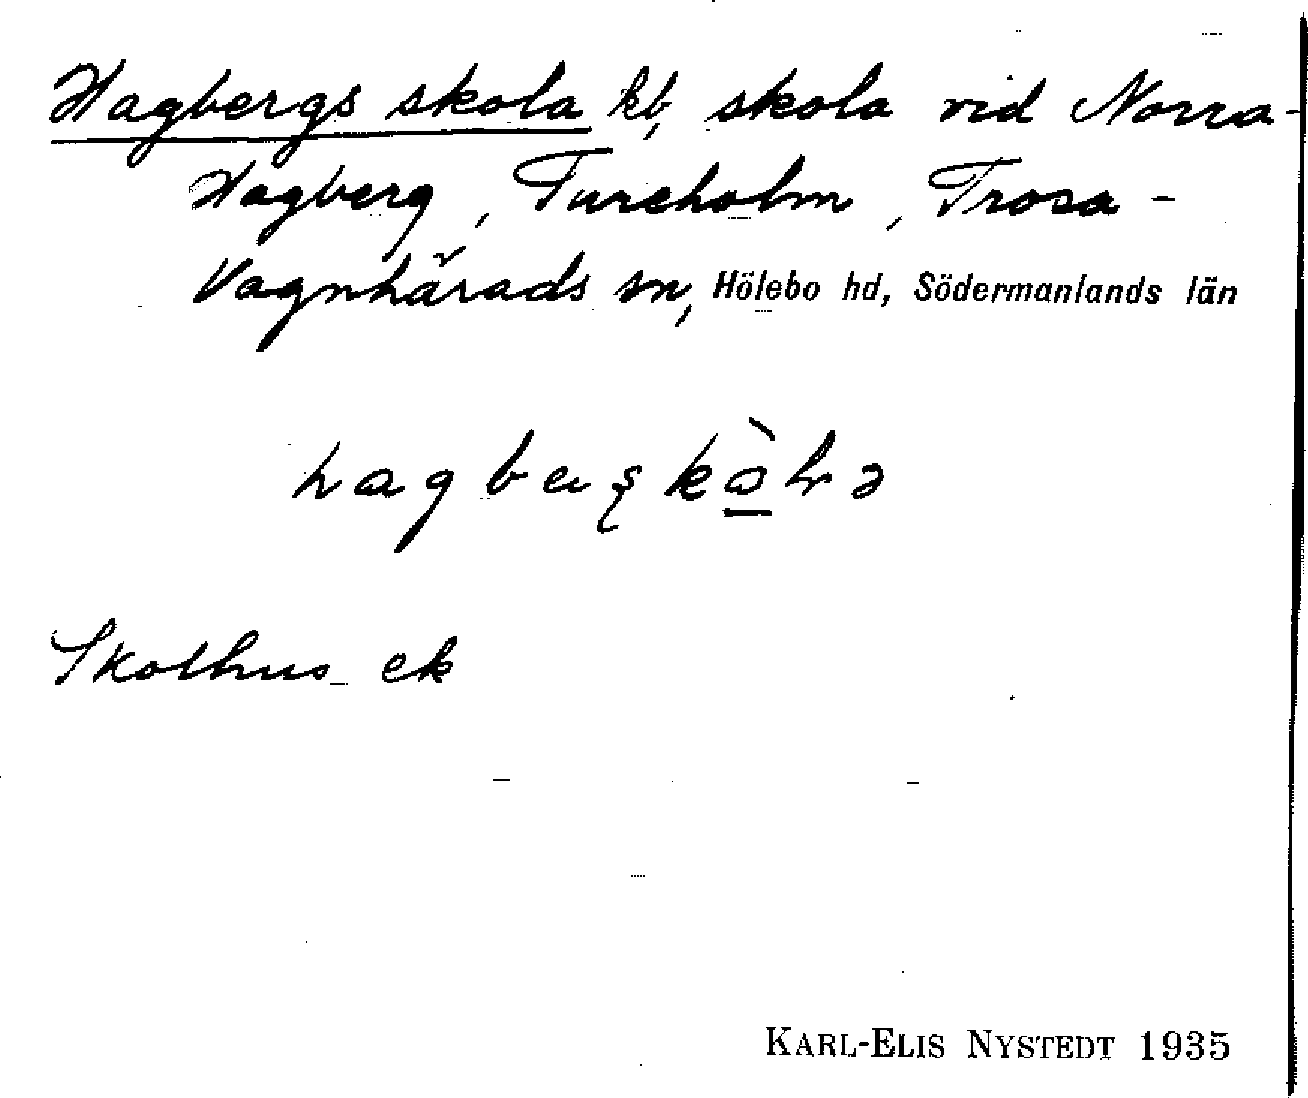 Hagbergs skola kb, skola vid Norra-
Hagberg, Tureholm, Trosa-
Vagnhärads sn, Hölebo hd, Södermanlands län
Skolhus ek
KARL-ELIS NYSTEDT 1935